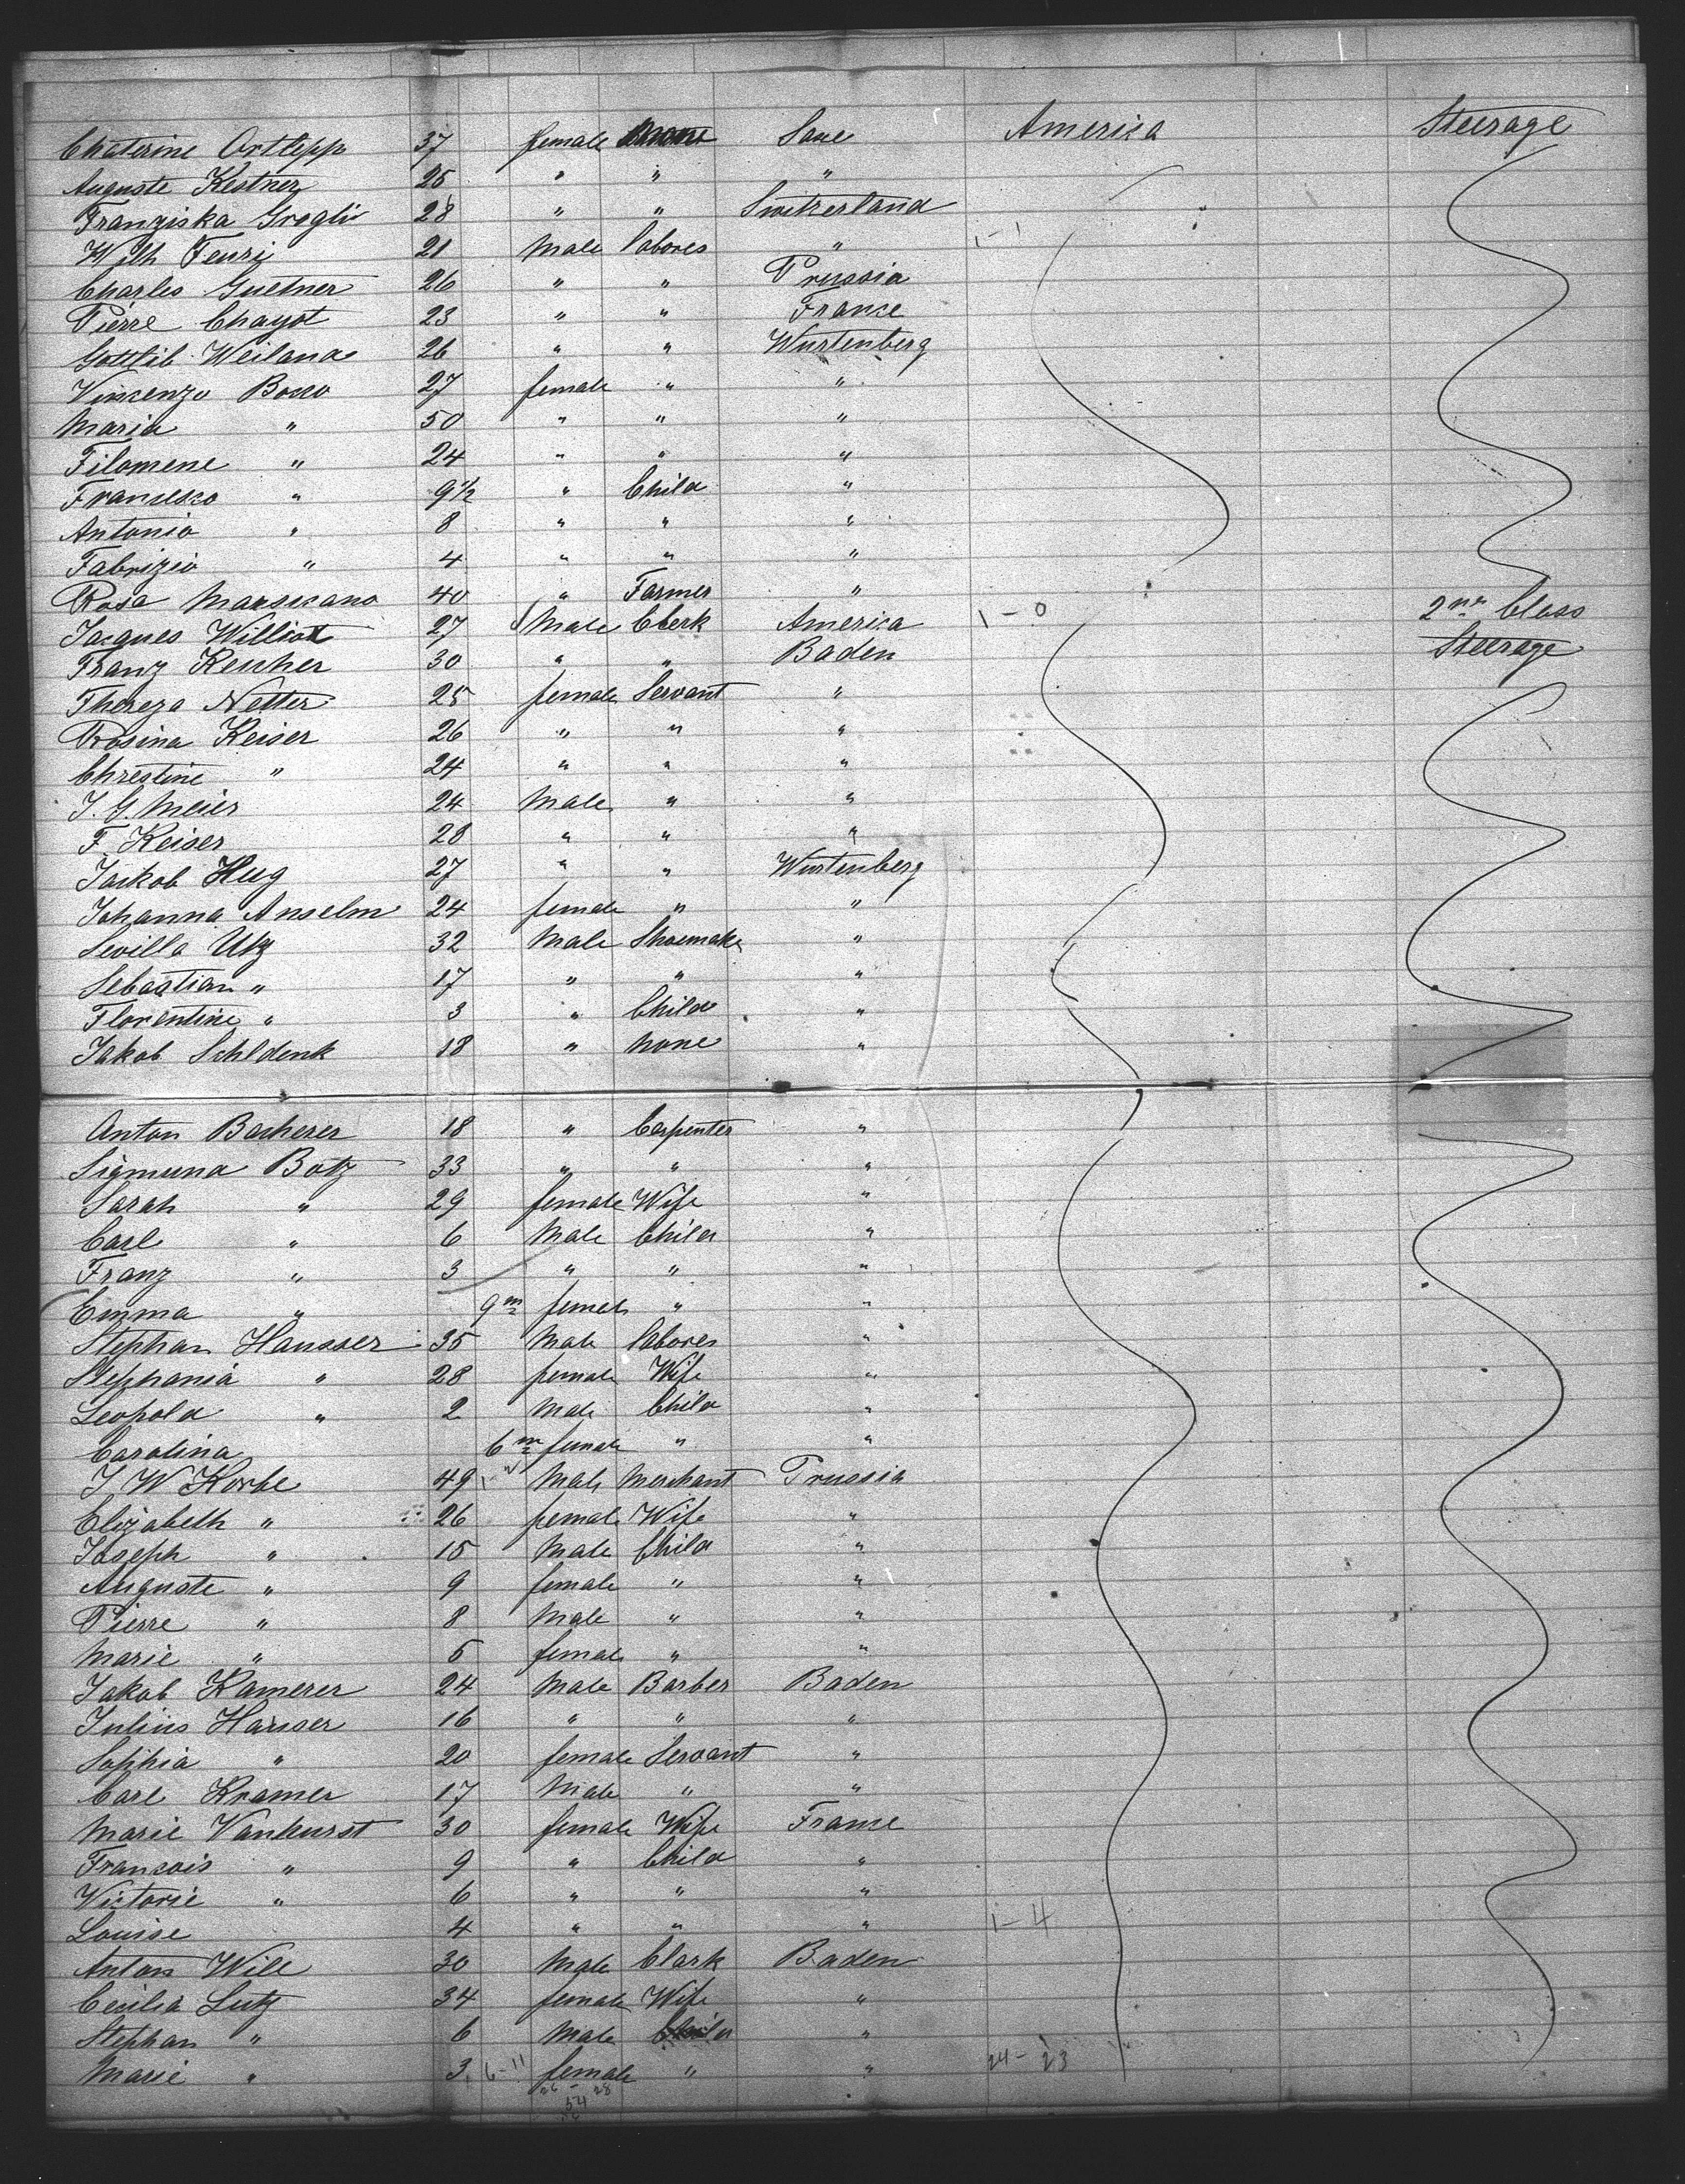 Chaterine Ortlepp 37 female none Saxe America Steerage
Auguste Kestner 25 " " "
Franziska Gregli 28 " " Switzerland
Wilh Feurz 21 Male labores " 1-1
Charles Guetner 26 " " Prussia
Pierre Chayot 23 " " France
Gottlib Weiland 26 " " Wurtenberg
Vincenzo Bosco 27 female " "
Maria " 50 " " "
Filomene " 24 " " "
Francesco " 9 1/2 " Child "
Antonio " 8 " " "
Fabrizio " 4 " " "
Rosa Marsicano 40 " Farmer "
Jacques Williot 27 Male Clerk America 1-0 2nd Class
Franz Reicher 30 " " Baden Steerage
Thereza Netter 25 female Servant "
Rosina Keiser 26 " " "
Chrestine " 24 " " "
J. G. Meier 24 Male " "
F. Keiser 28 " " "
Jackob Hug 27 " " Wurtenberg
Johanna Anselm 24 female " "
Sevilla Utz 32 Male Shoemaker "
Sebastian " 17 " " "
Florentine " 3 " Child "
Jakob Schldenk 18 " none "
Anton Bacherer 18 " Carpenter "
Sigmund Botz 33 " " "
Sarah " 29 female Wife "
Carl " 6 Male Child "
Franz " 3 " " "
Emma " 9m female " "
Stephan Hausser 35 Male labores "
Stephania " 28 female Wife "
Leopold " 2 Male Child "
Carolina 6m female " "
J W Korbe 49 Male Merchant Prussia
Elizabeth " 26 female Wife "
Joseph " 15 Male Child "
Auguste " 9 female " "
Pierre " 8 Male " "
Marie " 5 female " "
Jakob Kamerer 24 Male Barber Baden
Julius Hauser 16 " " "
Sophia " 20 female Servant "
Carl Kramer 17 Male " "
Marie Vanhurst 30 female Wife France
Francois " 9 " Child "
Victorie " 6 " " "
Louise 4 " " " 1-4
Anton Will 30 Male Clark Baden
Cecilia Lutz 34 female Wife "
Stephan " 6 Male Child "
Marie " 3 6-11 female " " 24-23
26-28
54